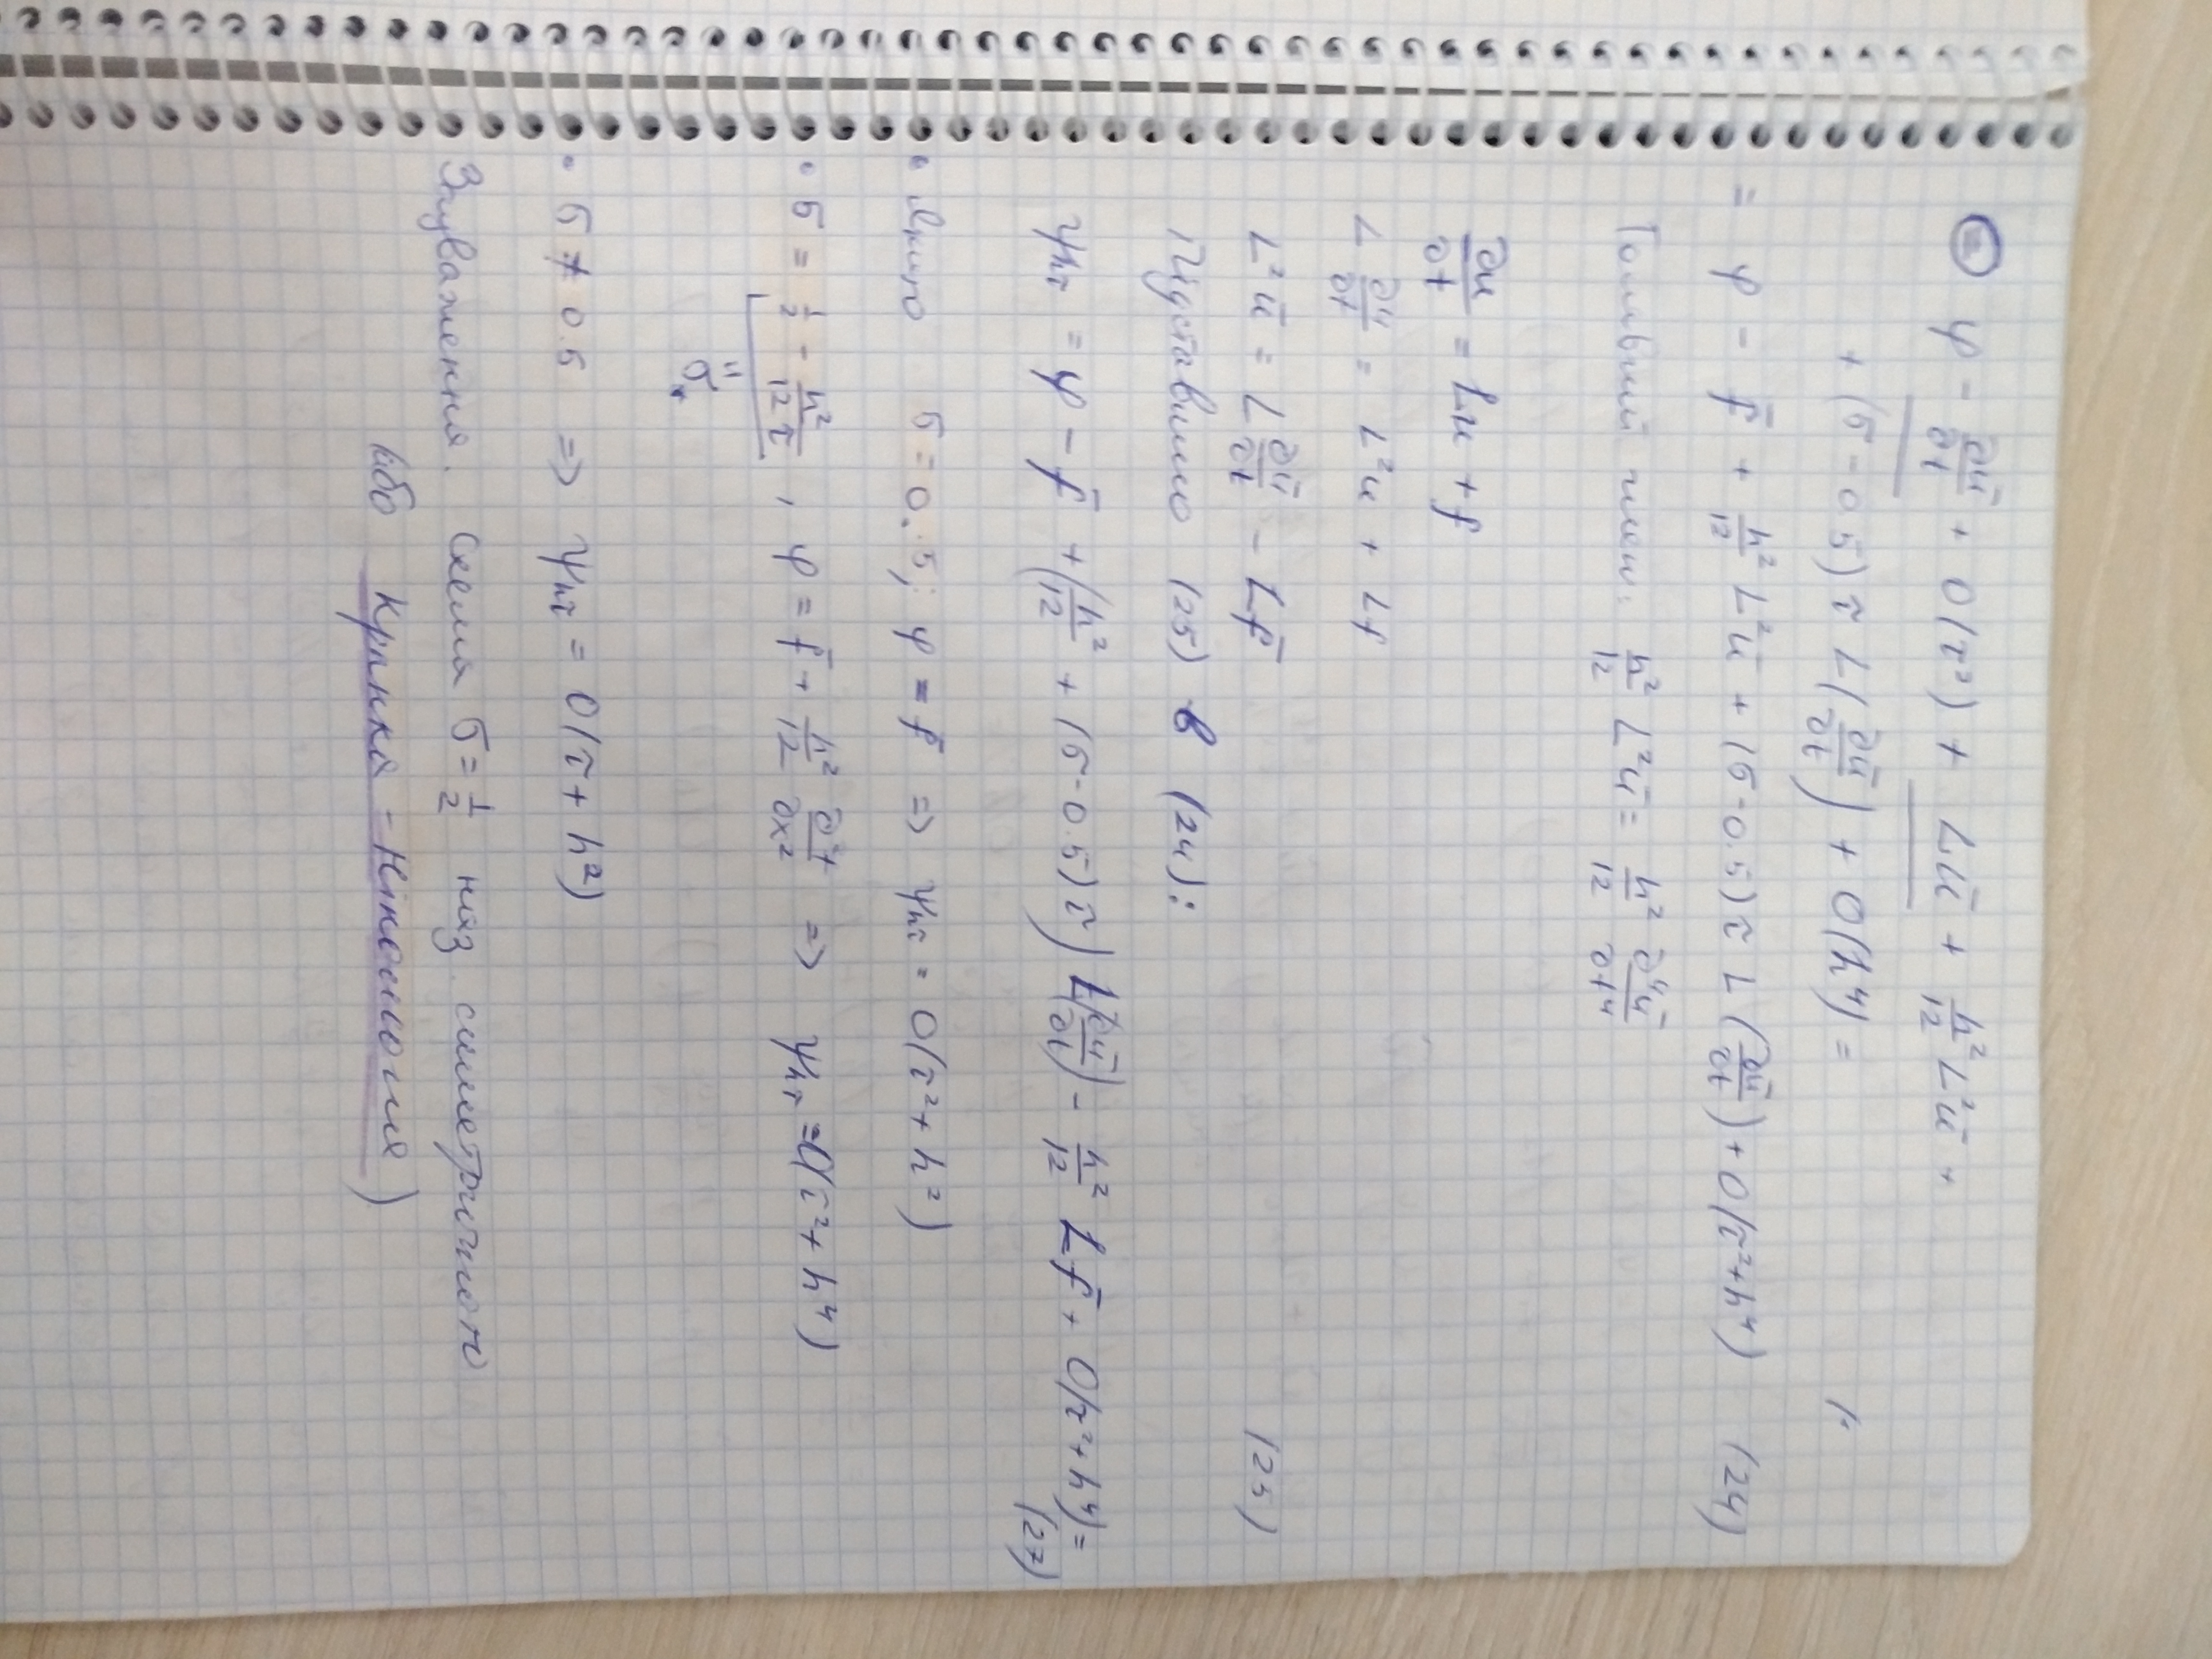 ⊜ φ - ∂ū/∂t + O(τ²) + Lū + h²/12 L²ū +
+ (σ - 0.5)τ L(∂ū/∂t) + O(h⁴) =
= φ - f̄ + h²/12 L²ū + (σ - 0.5)τ L(∂ū/∂t) + O(τ² + h⁴) (24)
Головний член: h²/12 L²ū = h²/12 ∂⁴ū/∂t⁴
∂u/∂t = Lu + f
L ∂u/∂t = L²u + Lf
L²ū = L ∂ū/∂t - Lf̄ (25)
Підставимо (25) в (24):
ψhτ = φ - f̄ + (h²/12 + (σ - 0.5)τ) L(∂ū/∂t) - h²/12 Lf̄ + O(τ² + h⁴) = (27)
• якщо σ = 0.5; φ = f̄ => ψhτ = O(τ² + h²)
• σ = 1/2 - h²/12τ, φ = f̄ + h²/12 ∂²f/∂x² => ψhτ = O(τ² + h⁴)
"
σ*
• σ ≠ 0.5 => ψhτ = O(τ + h²)
Зауваження. Схема σ = 1/2 наз. симетричною
або Кранка - Ніколсона)